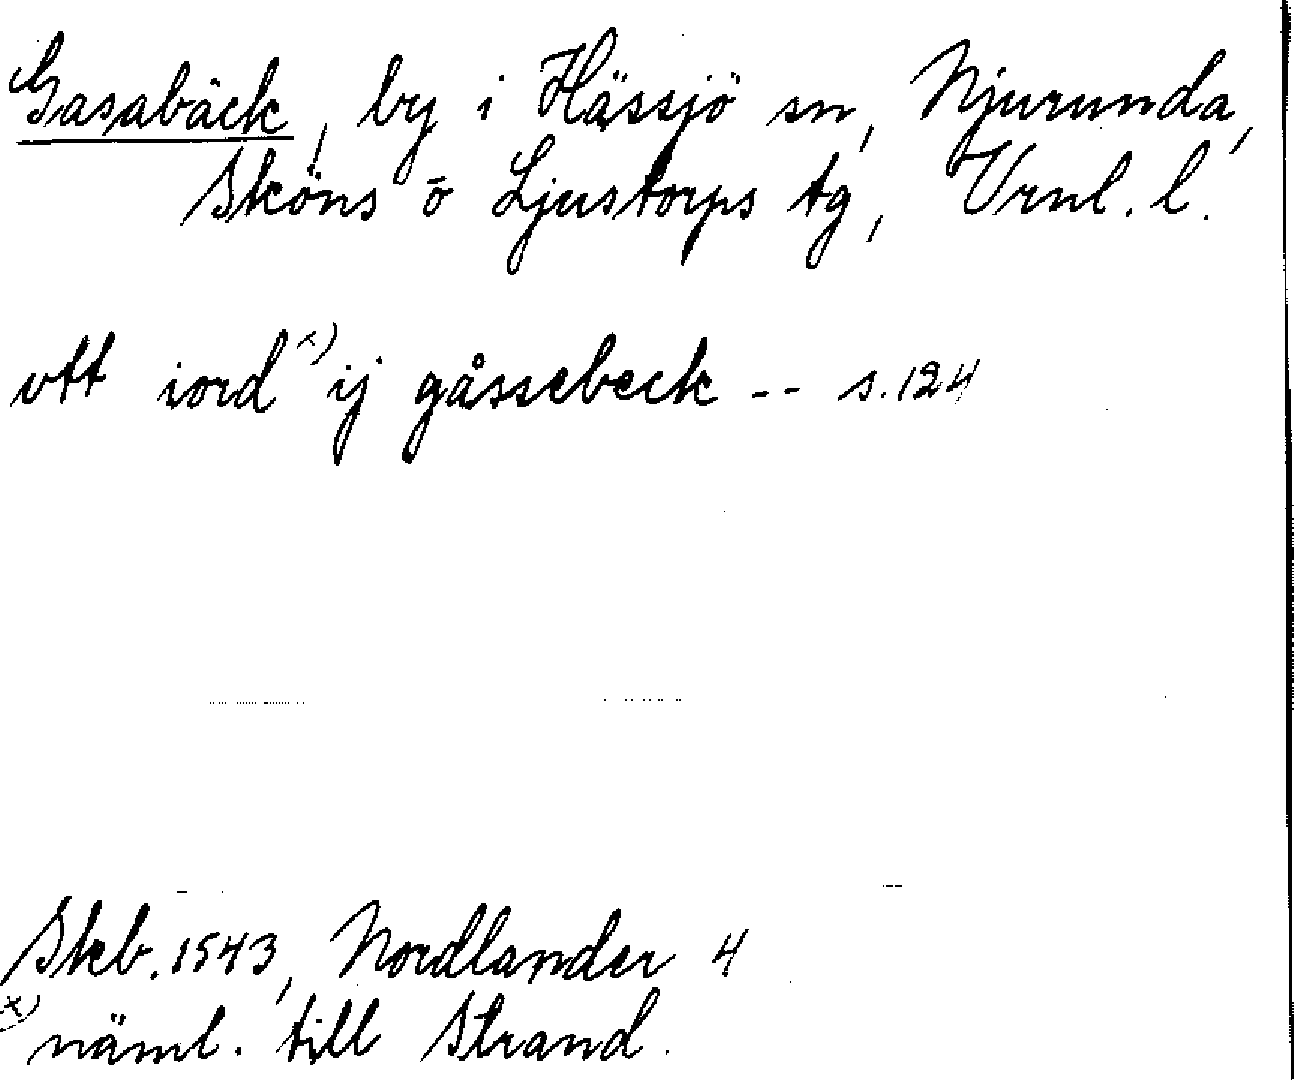 Gasabäck, by i Hässjö sn, Njurunda,
Sköns o Ljustorps tg, Vrnl. l.
vtt iord x) ij gåssebeck -- s. 124
Skb. 1543, Nordlander 4
x) näml. till Strand.